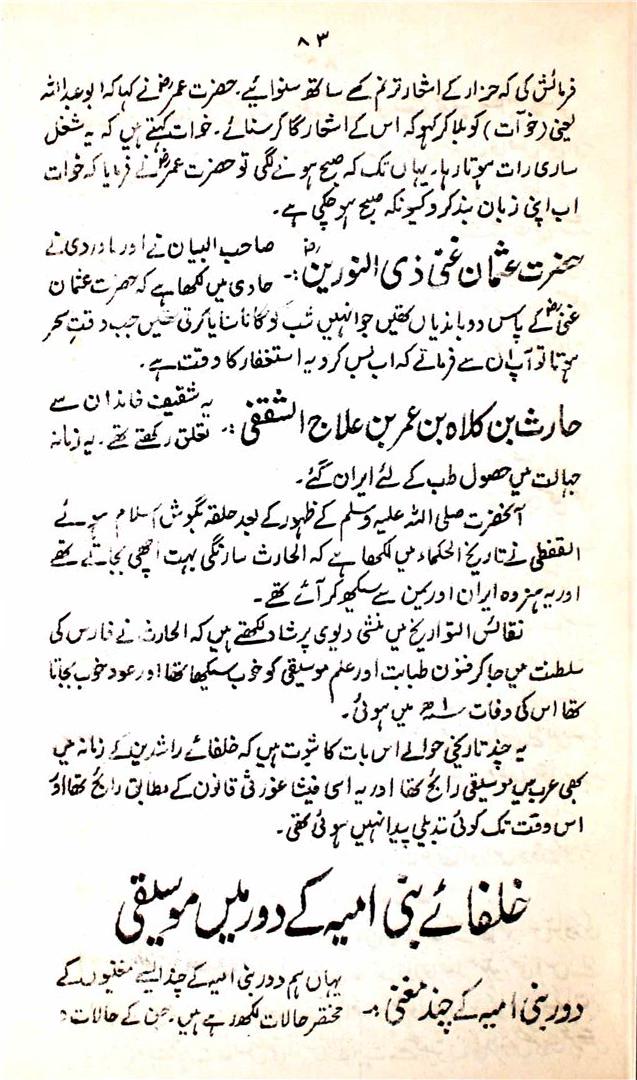 ۸۳
فرمائش کی کہ حزار کے اشعار ترنم کے ساتھ سنوائیے۔ حضرت عمرؓ نے کہا کہ ابو عبداللہ
یعنی (خوآت) کو بلا کر کہو کہ اس کے اشعار گا کر سنائے۔ خوات کہتے ہیں کہ یہ شغل
ساری رات ہوتا رہا۔ یہاں تک کہ صبح ہونے لگی تو حضرت عمرؓ نے فرمایا کہ خوات
اب اپنی زبان بند کرو کیونکہ صبح ہو چکی ہے۔
حضرت عثمان غنی ذی النورینؓ :۔ صاحب البیان نے اور ماوردی نے
حادی میں لکھا ہے کہ حضرت عثمان
غنیؓ کے پاس دو باندیاں تھیں جو انہیں شب کو گانا سنایا کرتی تھیں جب وقتِ سحر
ہوتا تو آپ ان سے فرماتے کہ اب بس کرو یہ استغفار کا وقت ہے۔
حارث بن کلاہ بن عمر بن علاج الثقفی :۔ یہ شقیف خاندان سے
تعلق رکھتے تھے۔ یہ زمانہ
جہالت میں حصول طب کے لئے ایران گئے۔
آنحضرت صلی اللہ علیہ وسلم کے ظہور کے بعد حلقہ بگوش اسلام ہوئے
القفطی نے تاریخ الحکماء میں لکھا ہے کہ الحارث سارنگی بہت اچھی بجاتے تھے
اور یہ ہنر وہ ایران اور یمن سے سیکھ کر آئے تھے۔
نفائس التواریخ میں منشی دیوی پرشاد لکھتے ہیں کہ الحارث نے فارس کی
سلطنت میں جا کر فنون طبابت اور علم موسیقی کو خوب سیکھا تھا اور عود خوب بجاتا
تھا اس کی وفات میں ہوئی۔
یہ چند تاریخی حوالے اس بات کا ثبوت ہیں کہ خلفائے راشدین کے زمانہ میں
بھی عرب میں موسیقی رائج تھا اور یہ اسی فیثا غورثی قانون کے مطابق رائج تھا اور
اس وقت تک کوئی تبدیلی پیدا نہیں ہوئی تھی۔
خلفائے بنی امیہ کے دور میں موسیقی
دور بنی امیہ کے چند مغنی :۔ یہاں ہم دور بنی امیہ کے چند ایسے مغنیوں کے
مختصر حالات لکھ رہے ہیں۔ جن کے حالات و